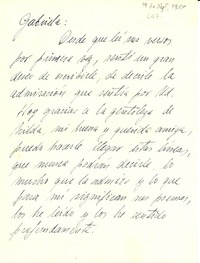 Gabriela:
Desde que leí sus versos
por primera vez, sentí un gran
deseo de escribirle, de decirle la
admiración que sentía por Ud.
Hoy gracias a la gentileza de
mi buena y querida amiga,
puedo hacerle llegar estas líneas,
que nunca podrán decirle lo
mucho que la admiro y lo que
para mí significan sus poemas,
los he leído y los he sentido
profundamente.